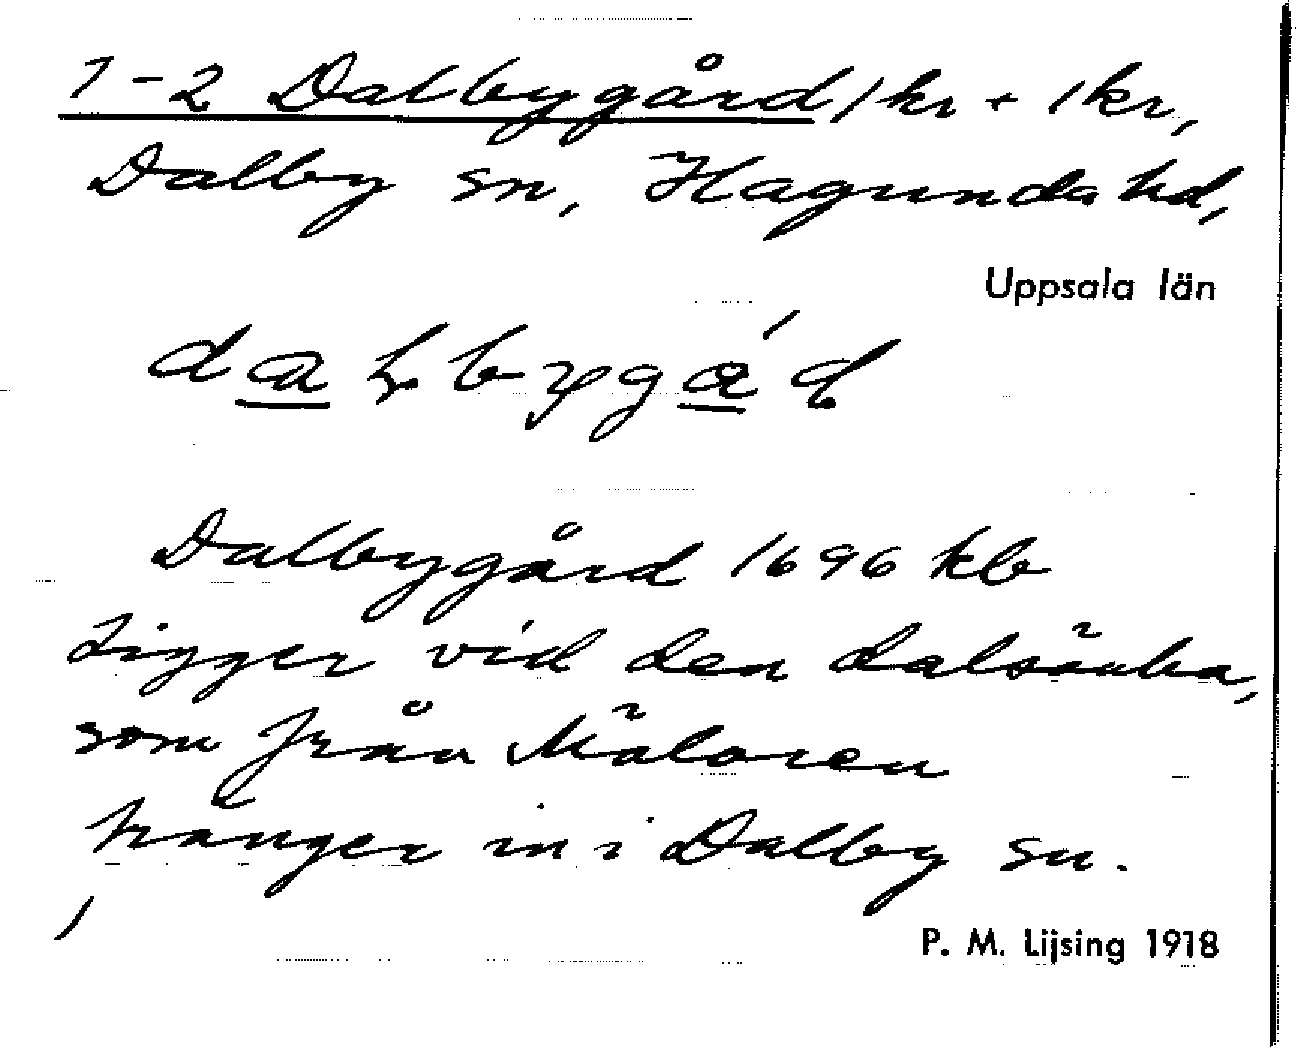 1-2 Dalbygård 1 kr + 1 kr,
Dalby sn, Hagunda hd,
Uppsala län
Dalbygård 1696 kb
Ligger vid den dalsänka,
som från Mälaren
tränger in i Dalby sn.
P. M. Lijsing 1918